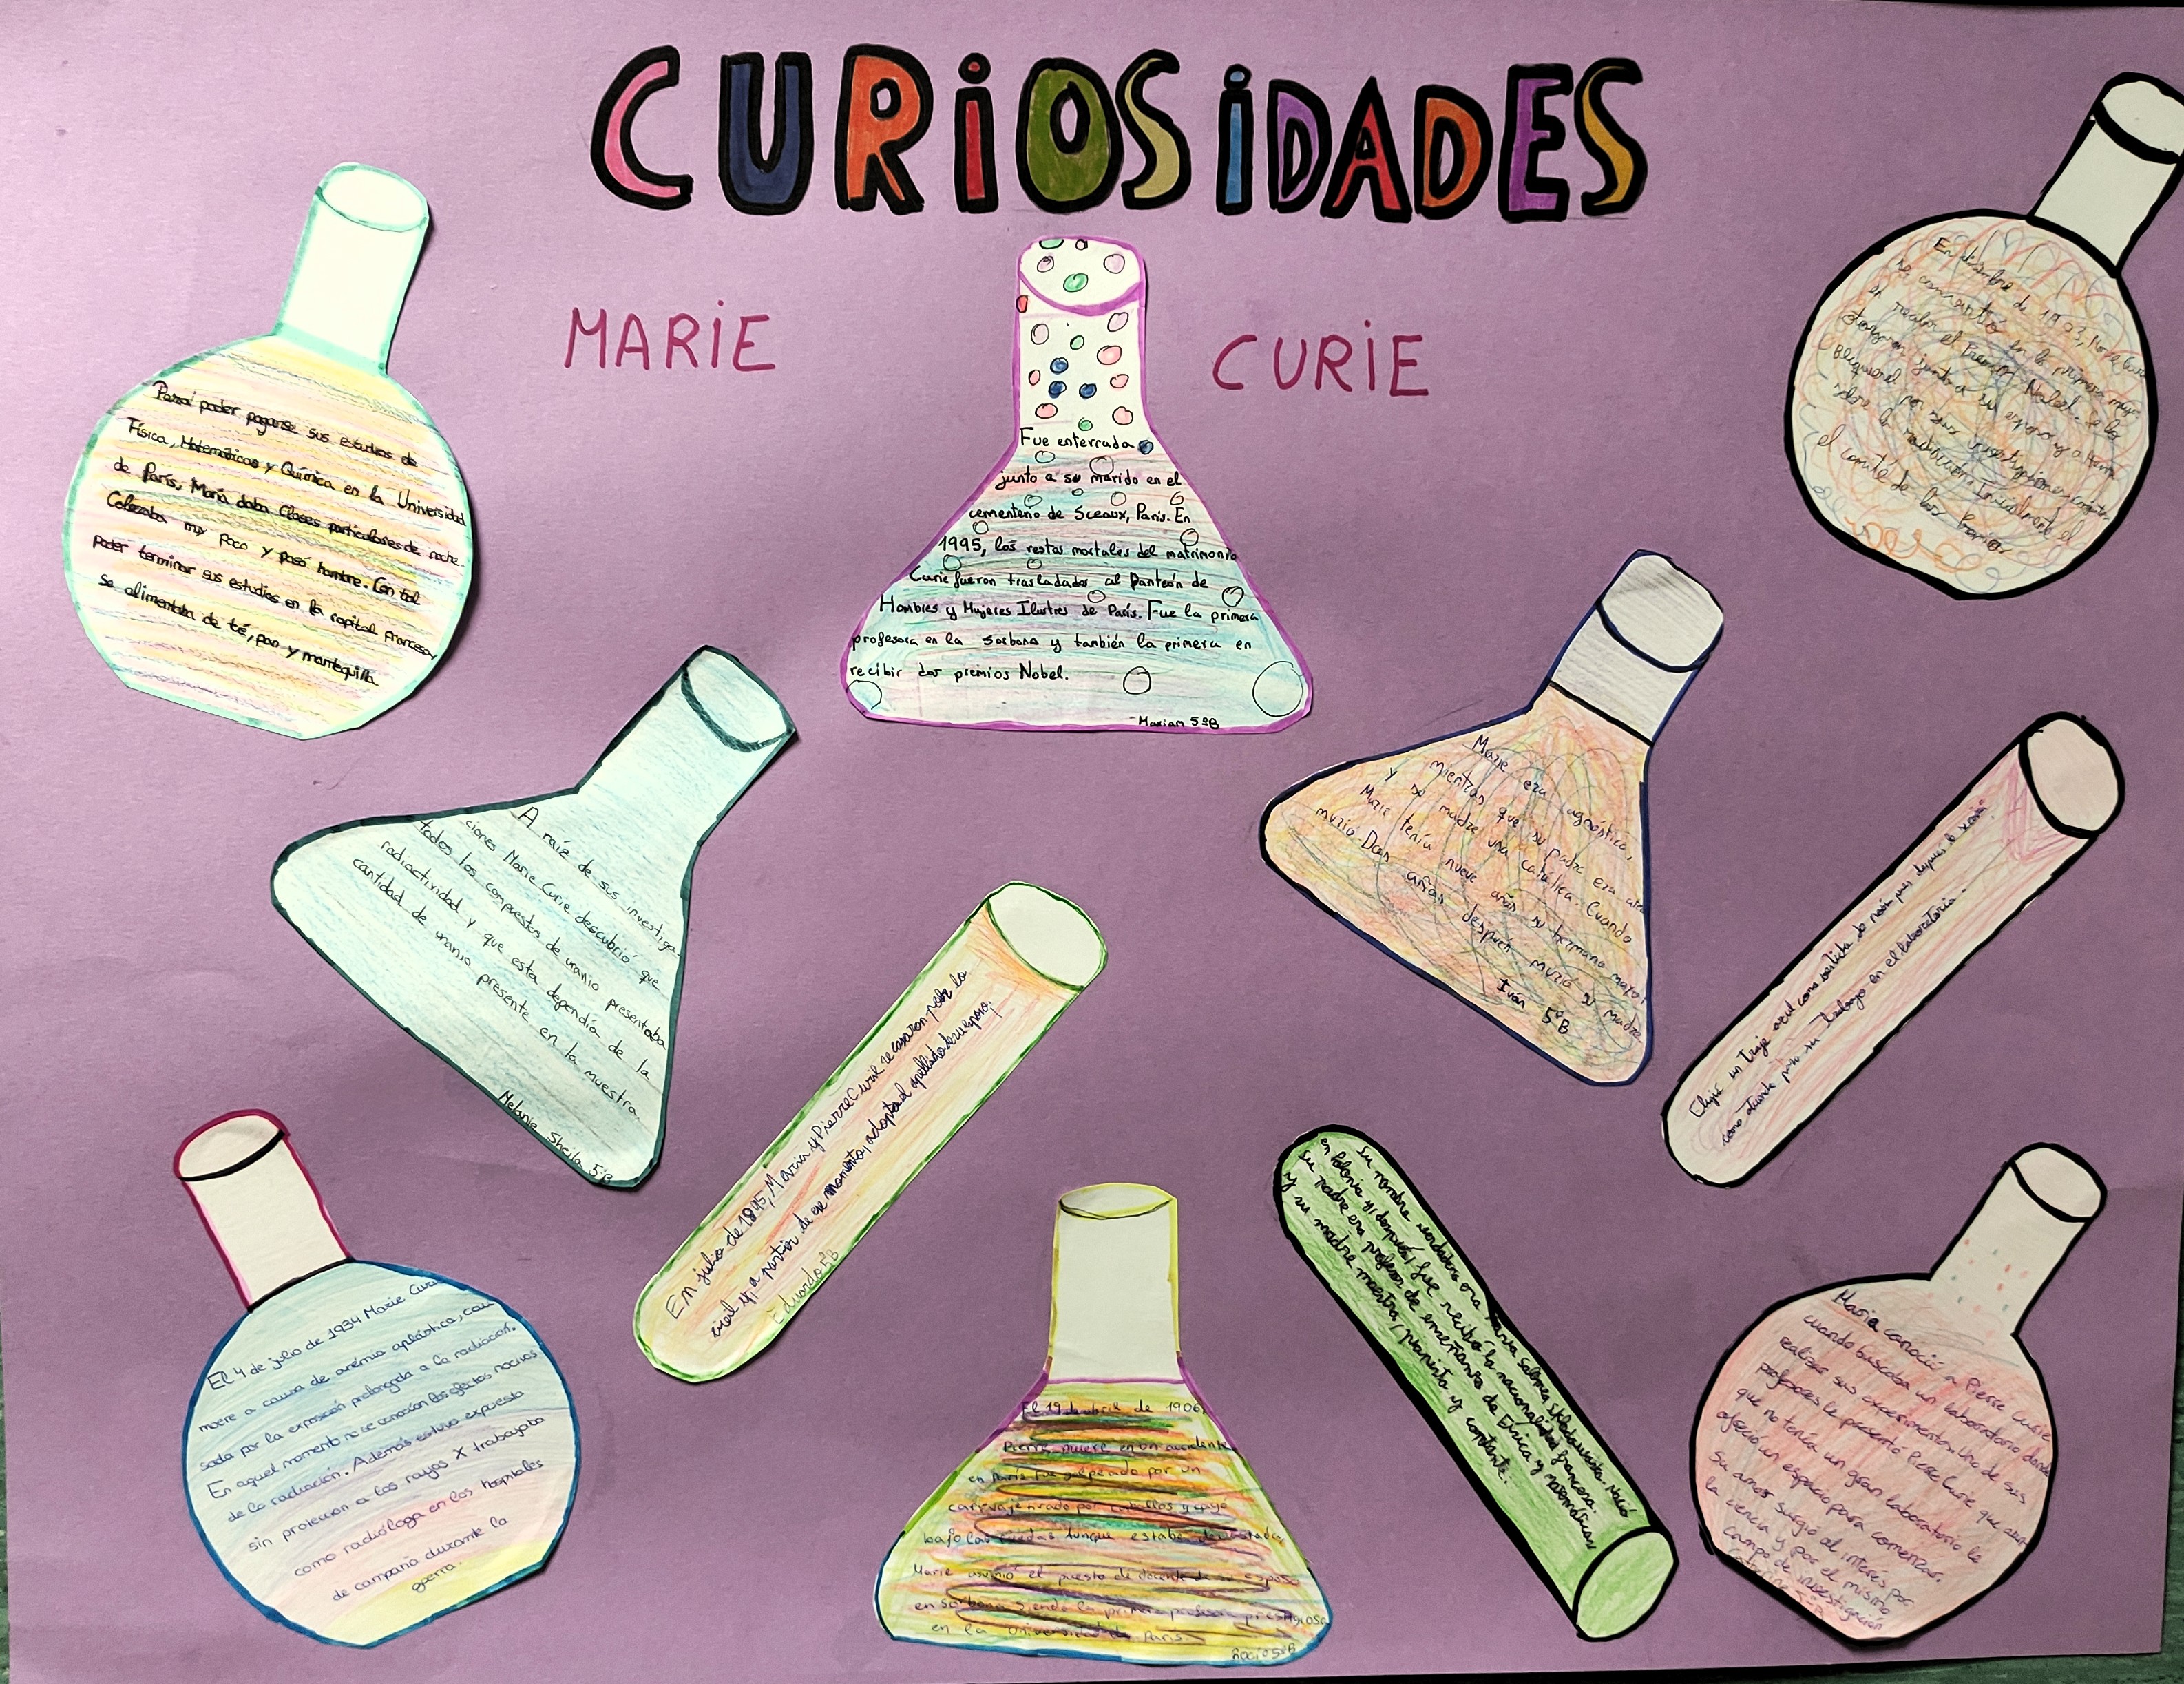 CURIOSIDADES
MARIE CURIE
Para poder pagarse sus estudios de
Física, Matemáticas y Química en la Universidad
de París, María daba Clases particulares de noche.
Cobraba muy poco y pasó hambre. Con tal
poder terminar sus estudios en la capital francesa,
se alimentaba de té, pan y mantequilla
Fue enterrada
junto a su marido en el
cementerio de Sceaux, París. En
1995, los restos mortales del matrimonio
Curie fueron trasladados al Panteón de
Hombres y Mujeres Ilustres de París. Fue la primera
profesora en la Sorbona y también la primera en
recibir dos premios Nobel.
Mariam 5ºB
de 1903, Marie Curie
se convirtió en la primera mujer
en recibir el Premio Nobel. Se los
otorgaron junto a su esposo y a Henri
por sus investigaciones
sobre la radiación. Inicialmente el
el comité de los Premios
A raíz de sus investiga-
ciones Marie Curie descubrió que
todos los compuestos de uranio presentaba
radioactividad y que esta dependía de la
cantidad de uranio presente en la muestra.
Melanie Sheila 5ºB
Marie era agnóstica,
mientras que su padre era ateo
y su madre una católica. Cuando
Marie tenía nueve años su hermano mayor
murió. Dos años después murió su madre
Iván 5ºB
Eligió un traje azul como vestido de novia pues después lo usaría
como atuendo para su trabajo en el laboratorio.
En julio de 1895, Maria y Pierre Curie se casaron por lo
civil y, a partir de ese momento, adopta el apellido de su esposo.
Eduardo 5ºB
El 4 de julio de 1934 Marie Curie
muere a causa de anemia aplástica, cau
sada por la exposición prolongada a la radiación.
En aquel momento no se conocían los efectos nocivos
de la radiación. Además estuvo expuesta
sin protección a los rayos X trabajaba
como radióloga en los hospitales
de campaña durante la
guerra.
El 19 de abril de 1906
Pierre, muere en un accidente
en París fue golpeado por un
carruaje tirado por caballos y cayo
bajo las ruedas aunque estaba devastada,
Marie asumió el puesto de docente de su esposo
en Sorbona siendo la primera profesora prestigiosa
en la Universidad de París.
Rocío 5ºB
Su nombre verdadero era Maria Salomea Skłodowska. Nació
en Polonia y, después, fue recibió la nacionalidad francesa.
Su padre era profesor de enseñanza de Física y matemáticas
y su madre maestra, pianista y cantante.
Maria conoció a Pierre Curie
cuando buscaba un laboratorio donde
realizar sus experimentos. Uno de sus
profesores le presentó Piere Curie que aun
que no tenía un gran laboratorio le
ofreció un espacio para comenzar.
Su amor surgió al interés por
la ciencia y por el mismo
campo de investigación
5ºB